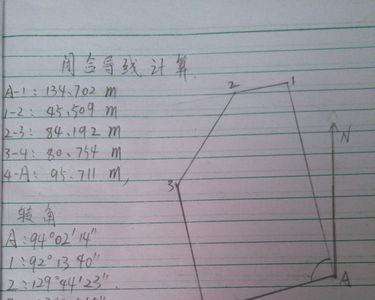 闭合导线计算
A-1: 134.702 m
1-2: 45.509 m
2-3: 84.192 m
3-4: 80.754 m
4-A: 95.711 m,
转角
A: 94°02'14"
1: 92°13'40"
2: 129°44'23"
1
2
3
N
A